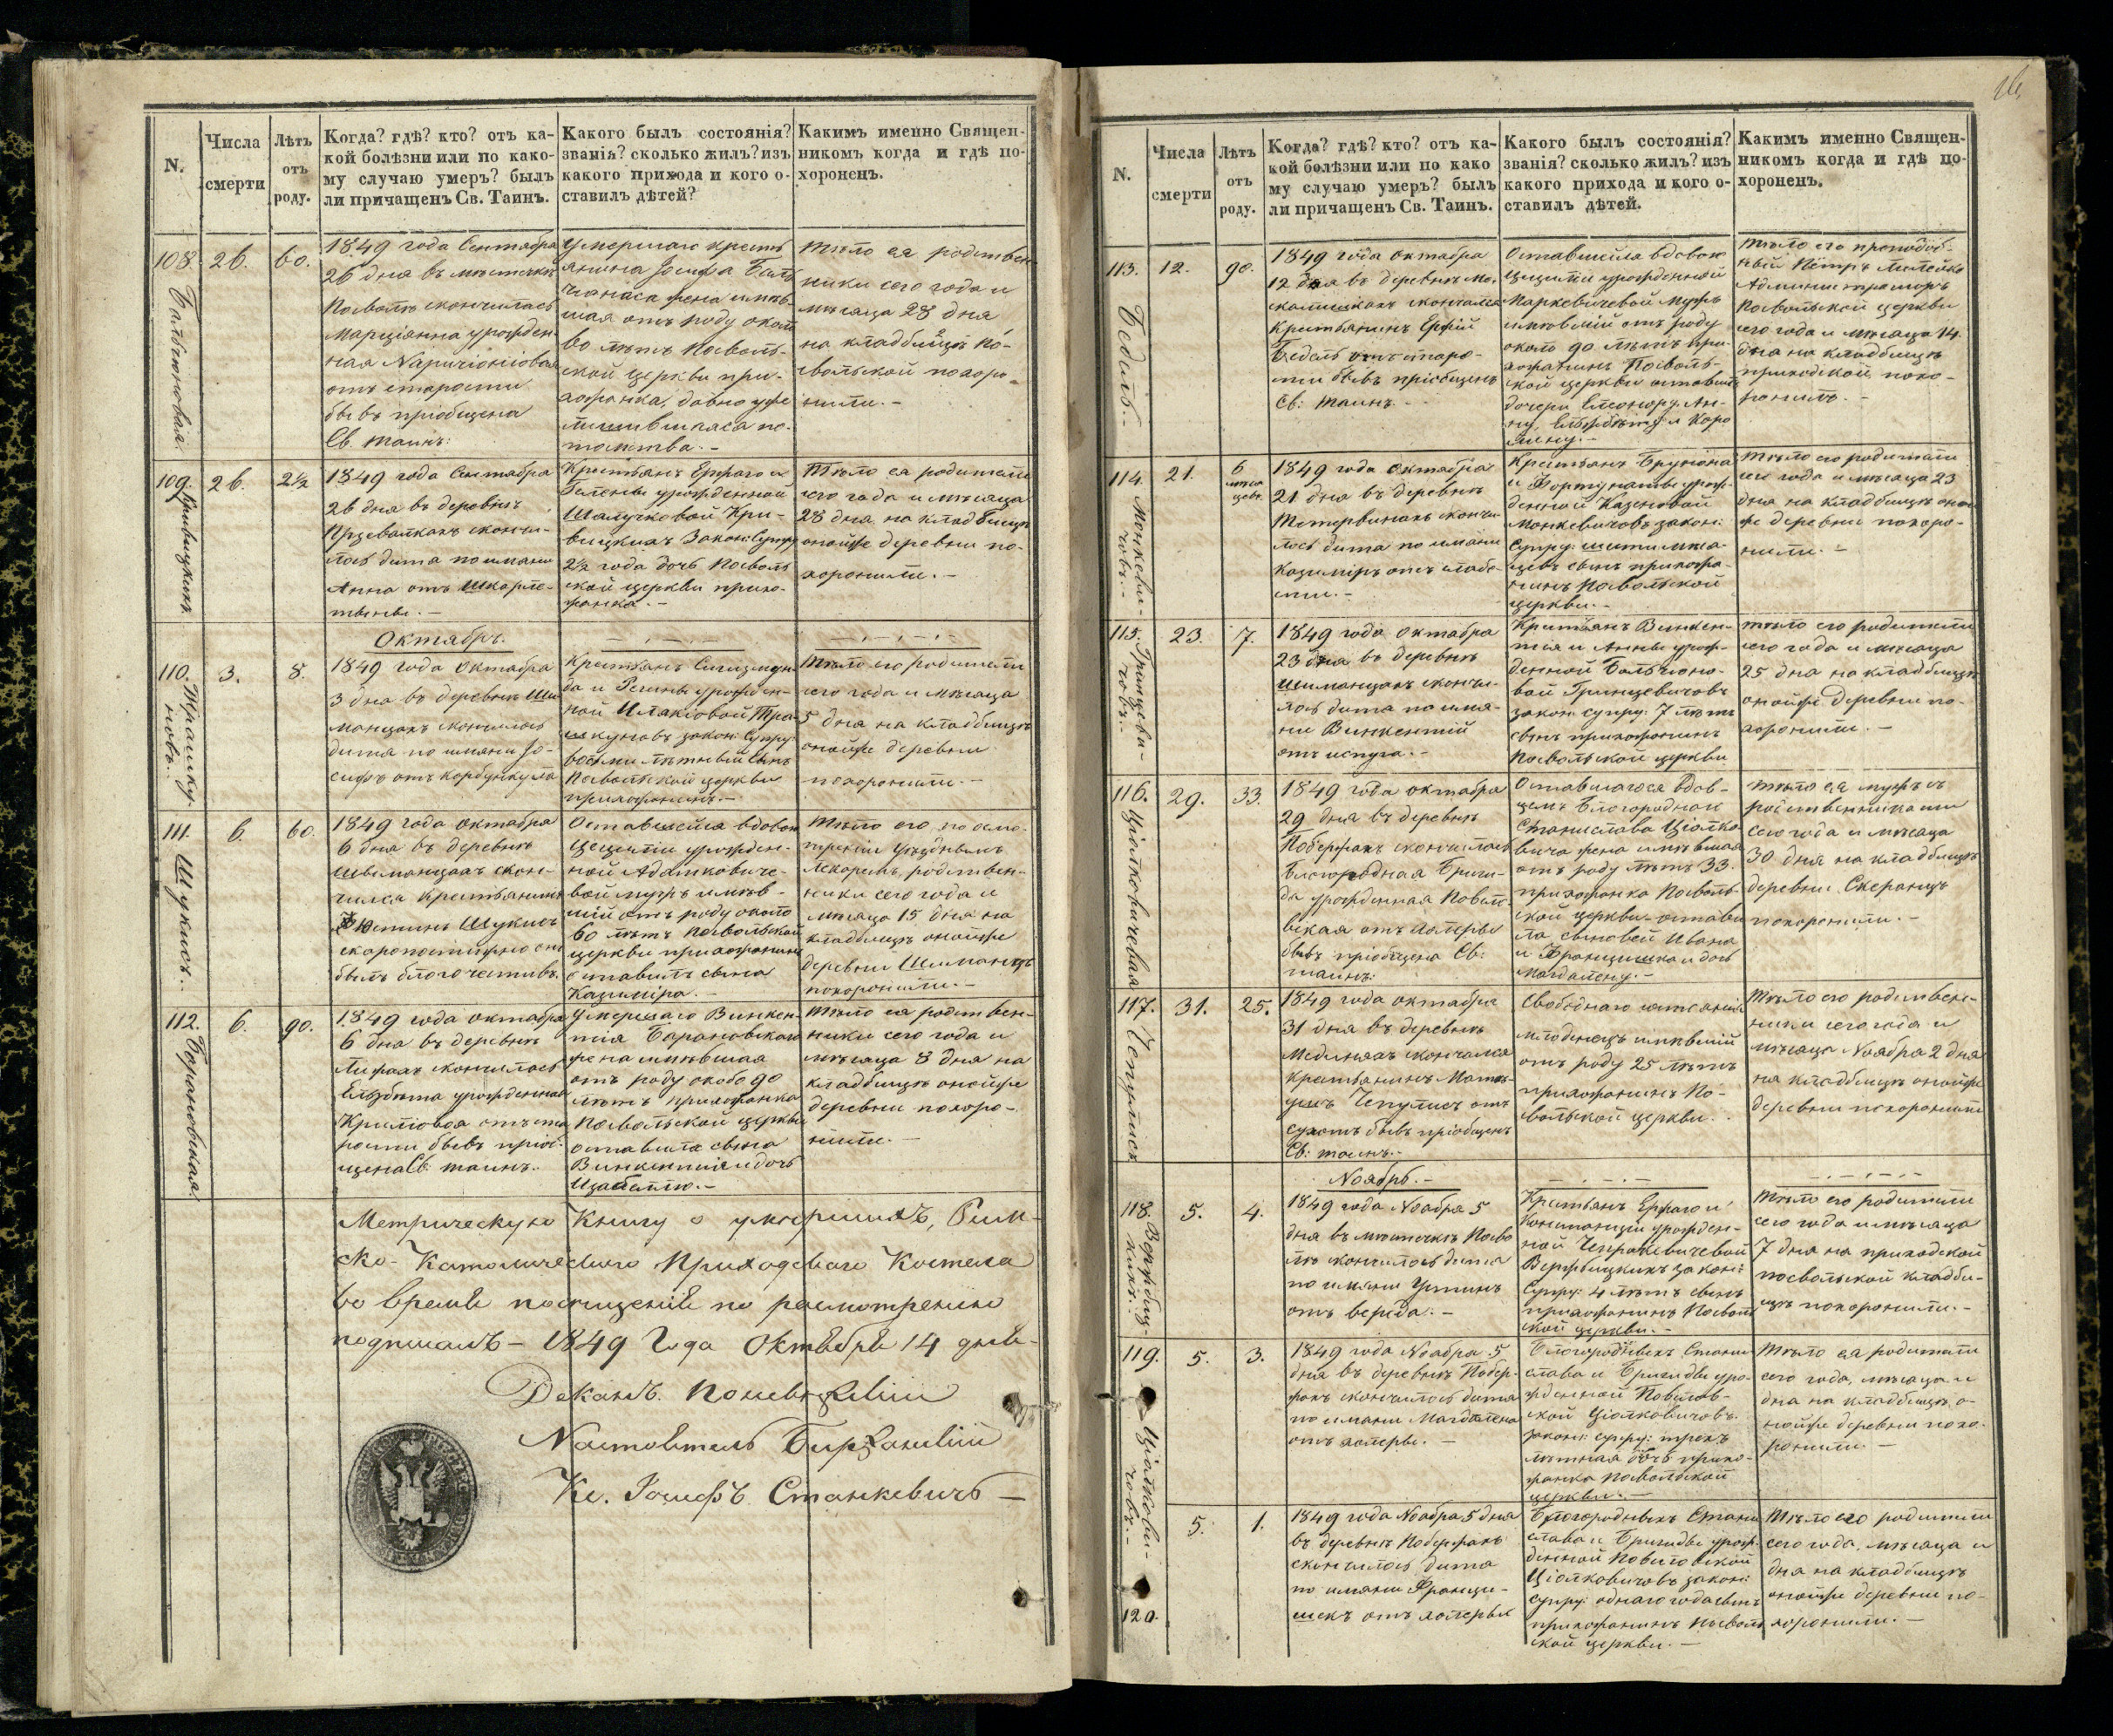 N.
Числа
смерти
Лѣтъ
отъ
роду.
Когда? гдѣ? кто? отъ ка-
кой болѣзни или по како-
му случаю умеръ? былъ
ли причащенъ Св. Таинъ.
Какого былъ состоянія?
званія? сколько жилъ? изъ
какого прихода и кого о-
ставилъ дѣтей?
Какимъ именно Священ-
никомъ когда и гдѣ по-
хороненъ.
108.
26.
60.
1849 года Сентября
26 дня въ мѣстечкѣ
Посволѣ скончалась
Марціянна урожден-
ная
отъ старости
бывъ пріобщена
Св. Таинъ:
Умершаго кресть
янина Іосифа
жена имѣв-
шая отъ роду около
60 лѣтъ Посволь-
ской церкви при-
хожанка, давно уже
лишившаяся по-
томства. –
Тѣло ея родствен-
ники сего года и
мѣсяца 28 дня
на кладбищѣ По-
свольской похоро-
нили. –
109.
Кривицкихъ
26.
2½
1849 года Сентября
26 дня въ деревнѣ
скончи-
лось дитя по имяни
Анна отъ Шкарла-
тыны. –
Крестьянъ Ержаго и
урожденной
Кри-
вицкихъ Закон: Супру
2½ года дочь Посволь
ской церкви прихо-
жанка. –
Тѣло ея родители
сего года и мѣсяца
28 дня на кладбищѣ
оной же деревни по-
хоронили. –
Октябрь.
110.
Трашку-
новъ. –
3.
8.
1849 года Октября
3 дня въ деревнѣ Ши
манцахъ скончилось
дитя по имяни Іо-
сифъ отъ карбункула
Крестьянъ Сигизмун-
да и Регины урожден-
ной Тра-
шкуновъ закон: Супру:
восьми лѣтный сынъ
Посвольской церкви
прихожанинъ. –
Тѣло его родители
сего года и мѣсяца
5 дня на кладбищѣ
оной же деревни
похоронили. –
111.
Шукисъ. –
6.
60.
1849 года Октября
6 дня въ деревнѣ
Шиманцахъ скон-
чился крестьянинъ
Юстинъ Шукисъ
скоропостижно
былъ благочестивъ.
Оставшейся вдовою
Цециліи урожден-
ной Адамковиче-
вой мужъ имѣв-
шій отъ роду около
60 лѣтъ Посвольской
церкви прихожанинъ
оставилъ сына
Казиміра. –
Тѣло его по осмо-
трѣніи уѣзднымъ
Лекаремъ, родствен-
ники сего года и
мѣсяца 15 дня на
кладбищѣ оной же
деревни Шиманцъ
похоронили. –
112.
Барановская.
6.
90.
1849 года Октября
6 дня въ деревнѣ
скончилась
Елжбета урожденная
отъ ста
рости бывъ пріоб-
щена Св: таинъ. –
Умершаго Викен-
тія Барановскаго
жена имѣвшая
отъ роду около 90
лѣтъ прихожанка
Посвольской церкви
оставила сына
Викентія и дочь
Изабеллю. –
Тѣло ея родствен-
ники сего года и
мѣсяца 8 дня на
кладбищѣ оной же
деревни похоро-
нили. –
Метрическую Книгу о умершихъ, Рим-
ско-Католическаго Приходскаго Костела
во время посѣщенія по разсмотренію
подписалъ – 1849 Года Октября 14 дня –
Деканъ Поневѣжскій
Настоятель Биржанскій
Кс. Іосифъ Станкевичъ –
N.
Числа
смерти
Лѣтъ
отъ
роду.
Когда? гдѣ? кто? отъ ка-
кой болѣзни или по како
му случаю умеръ? былъ
ли причащенъ Св. Таинъ.
Какого былъ состоянія?
званія? сколько жилъ? изъ
какого прихода и кого о-
ставилъ дѣтей.
Какимъ именно Священ-
никомъ когда и гдѣ по-
хороненъ.
113.
Бедаль. –
12.
90.
1849 года Октября
12 дня въ деревнѣ
скончался
Крестьянинъ Ержій
Бедаль отъ старо-
сти бывъ пріобщенъ
Св: Таинъ. –
Оставшейся вдовою
Цециліи урожденной
Маркевичевой мужъ
имѣвшій отъ роду
около 90 лѣтъ при-
хожанинъ Посволь-
ской церкви оставилъ
дочери Елеонору, Ан-
ну, Елжбету и Каро
лину. –
Тѣло его преподоб-
ный Петръ
Администраторъ
Посвольской церкви
сего года и мѣсяца 14
дня на кладбищѣ
приходской похо-
ронилъ. –
114.
Монкеви-
човъ. –
21.
6
мѣся
цевъ.
1849 года Октября
21 дня въ деревнѣ
Тетервинахъ скончи
лось дитя по имяни
Казиміръ отъ слабо-
сти. –
Крестьянъ Брунона
и Фортунаты урож-
денной
Монкевичовъ закон:
Супру: шести мѣся-
цевъ сынъ прихожа-
нинъ Посвольской
церкви. –
Тѣло его родители
сего года и мѣсяца 23
дня на кладбищѣ оной
же деревни похоро-
нили. –
115.
Гринцеви-
човъ. –
23.
7.
1849 года Октября
23 дня въ деревнѣ
Шиманцахъ скончи-
лось дитя по имя-
ни Викентій
отъ испуга. –
Крестьянъ Викен-
тія и Анны урож-
денной
Гринцевичовъ
закон: супру: 7 лѣтъ
сынъ прихожанинъ
Посвольской церкви
Тѣло его родители
сего года и мѣсяца
25 дня на кладбищѣ
оной же деревни по-
хоронили. –
116.
Ціолковичевая
29.
33.
1849 года Октября
29 дня въ деревнѣ
Побержахъ скончилась
Благородная Бриги-
да урожденная Повил-
вская отъ холеры
бывъ пріобщена Св:
таинъ.
Оставшагося вдов-
цемъ Благороднаго
Станислава Ціолко-
вича жена имѣвшая
отъ роду лѣтъ 33.
прихожанка Посволь-
ской церкви – остави
ла сыновей Ивана
и Францишка и дочь
Магдалену. –
Тѣло ея мужъ съ
родственниками
сего года и мѣсяца
30 дня на кладбищѣ
деревни
похоронили. –
117.
Чепулисъ
31.
25.
1849 года Октября
31 дня въ деревнѣ
скончался
крестьянинъ
Чепулисъ отъ
сухотъ бывъ пріобщенъ
Св: таинъ. –
Свободнаго состоянія
младенецъ имѣвшій
отъ роду 25 лѣтъ
прихожанинъ По-
свольской церкви.
Тѣло его родствен-
ники сего года и
мѣсяца Ноября 2 дня
на кладбищѣ оной же
деревни похоронили
Ноябрь. –
118.
Вержбиц-
кихъ. –
5.
4.
1849 года Ноября 5
дня въ мѣстечкѣ Посво
лѣ скончилось дитя
по имяни Устинъ
отъ вереда. –
Крестьянъ Ержаго и
Констанціи урожден-
ной
Вержбицкихъ закон:
Супру: 4 лѣтъ сынъ
прихожанинъ Посволь
ской церкви. –
Тѣло его родители
сего года и мѣсяца
7 дня на приходской
посвольской кладби-
щѣ похоронили. –
119.
Ціолкови-
човъ. –
5.
3.
1849 года Ноября 5
дня въ деревнѣ Побер-
жахъ скончилось дитя
по имяни Магдалена
отъ холеры. –
Благородныхъ Стани-
слава и Бригиды уро-
жденной Повилов-
ской Ціолковичовъ
закон: супру: трехъ
лѣтная дочь прихо-
жанка Посвольской
церкви. –
Тѣло ея родители
сего года, мѣсяца и
дня на кладбищѣ о-
ной же деревни похо-
ронили. –
120.
5.
1.
1849 года Ноября 5 дня
въ деревнѣ Побержахъ
скончилось дитя
по имяни Францы-
шекъ отъ холеры
Благородныхъ Стани
слава и Бригиды урож-
денной Повиловской
Ціолковичовъ закон:
супру: однаго года сынъ
прихожанинъ Посволь
ской церкви. –
Тѣло его родители
сего года, мѣсяца и
дня на кладбищѣ
оной же деревни по-
хоронили. –